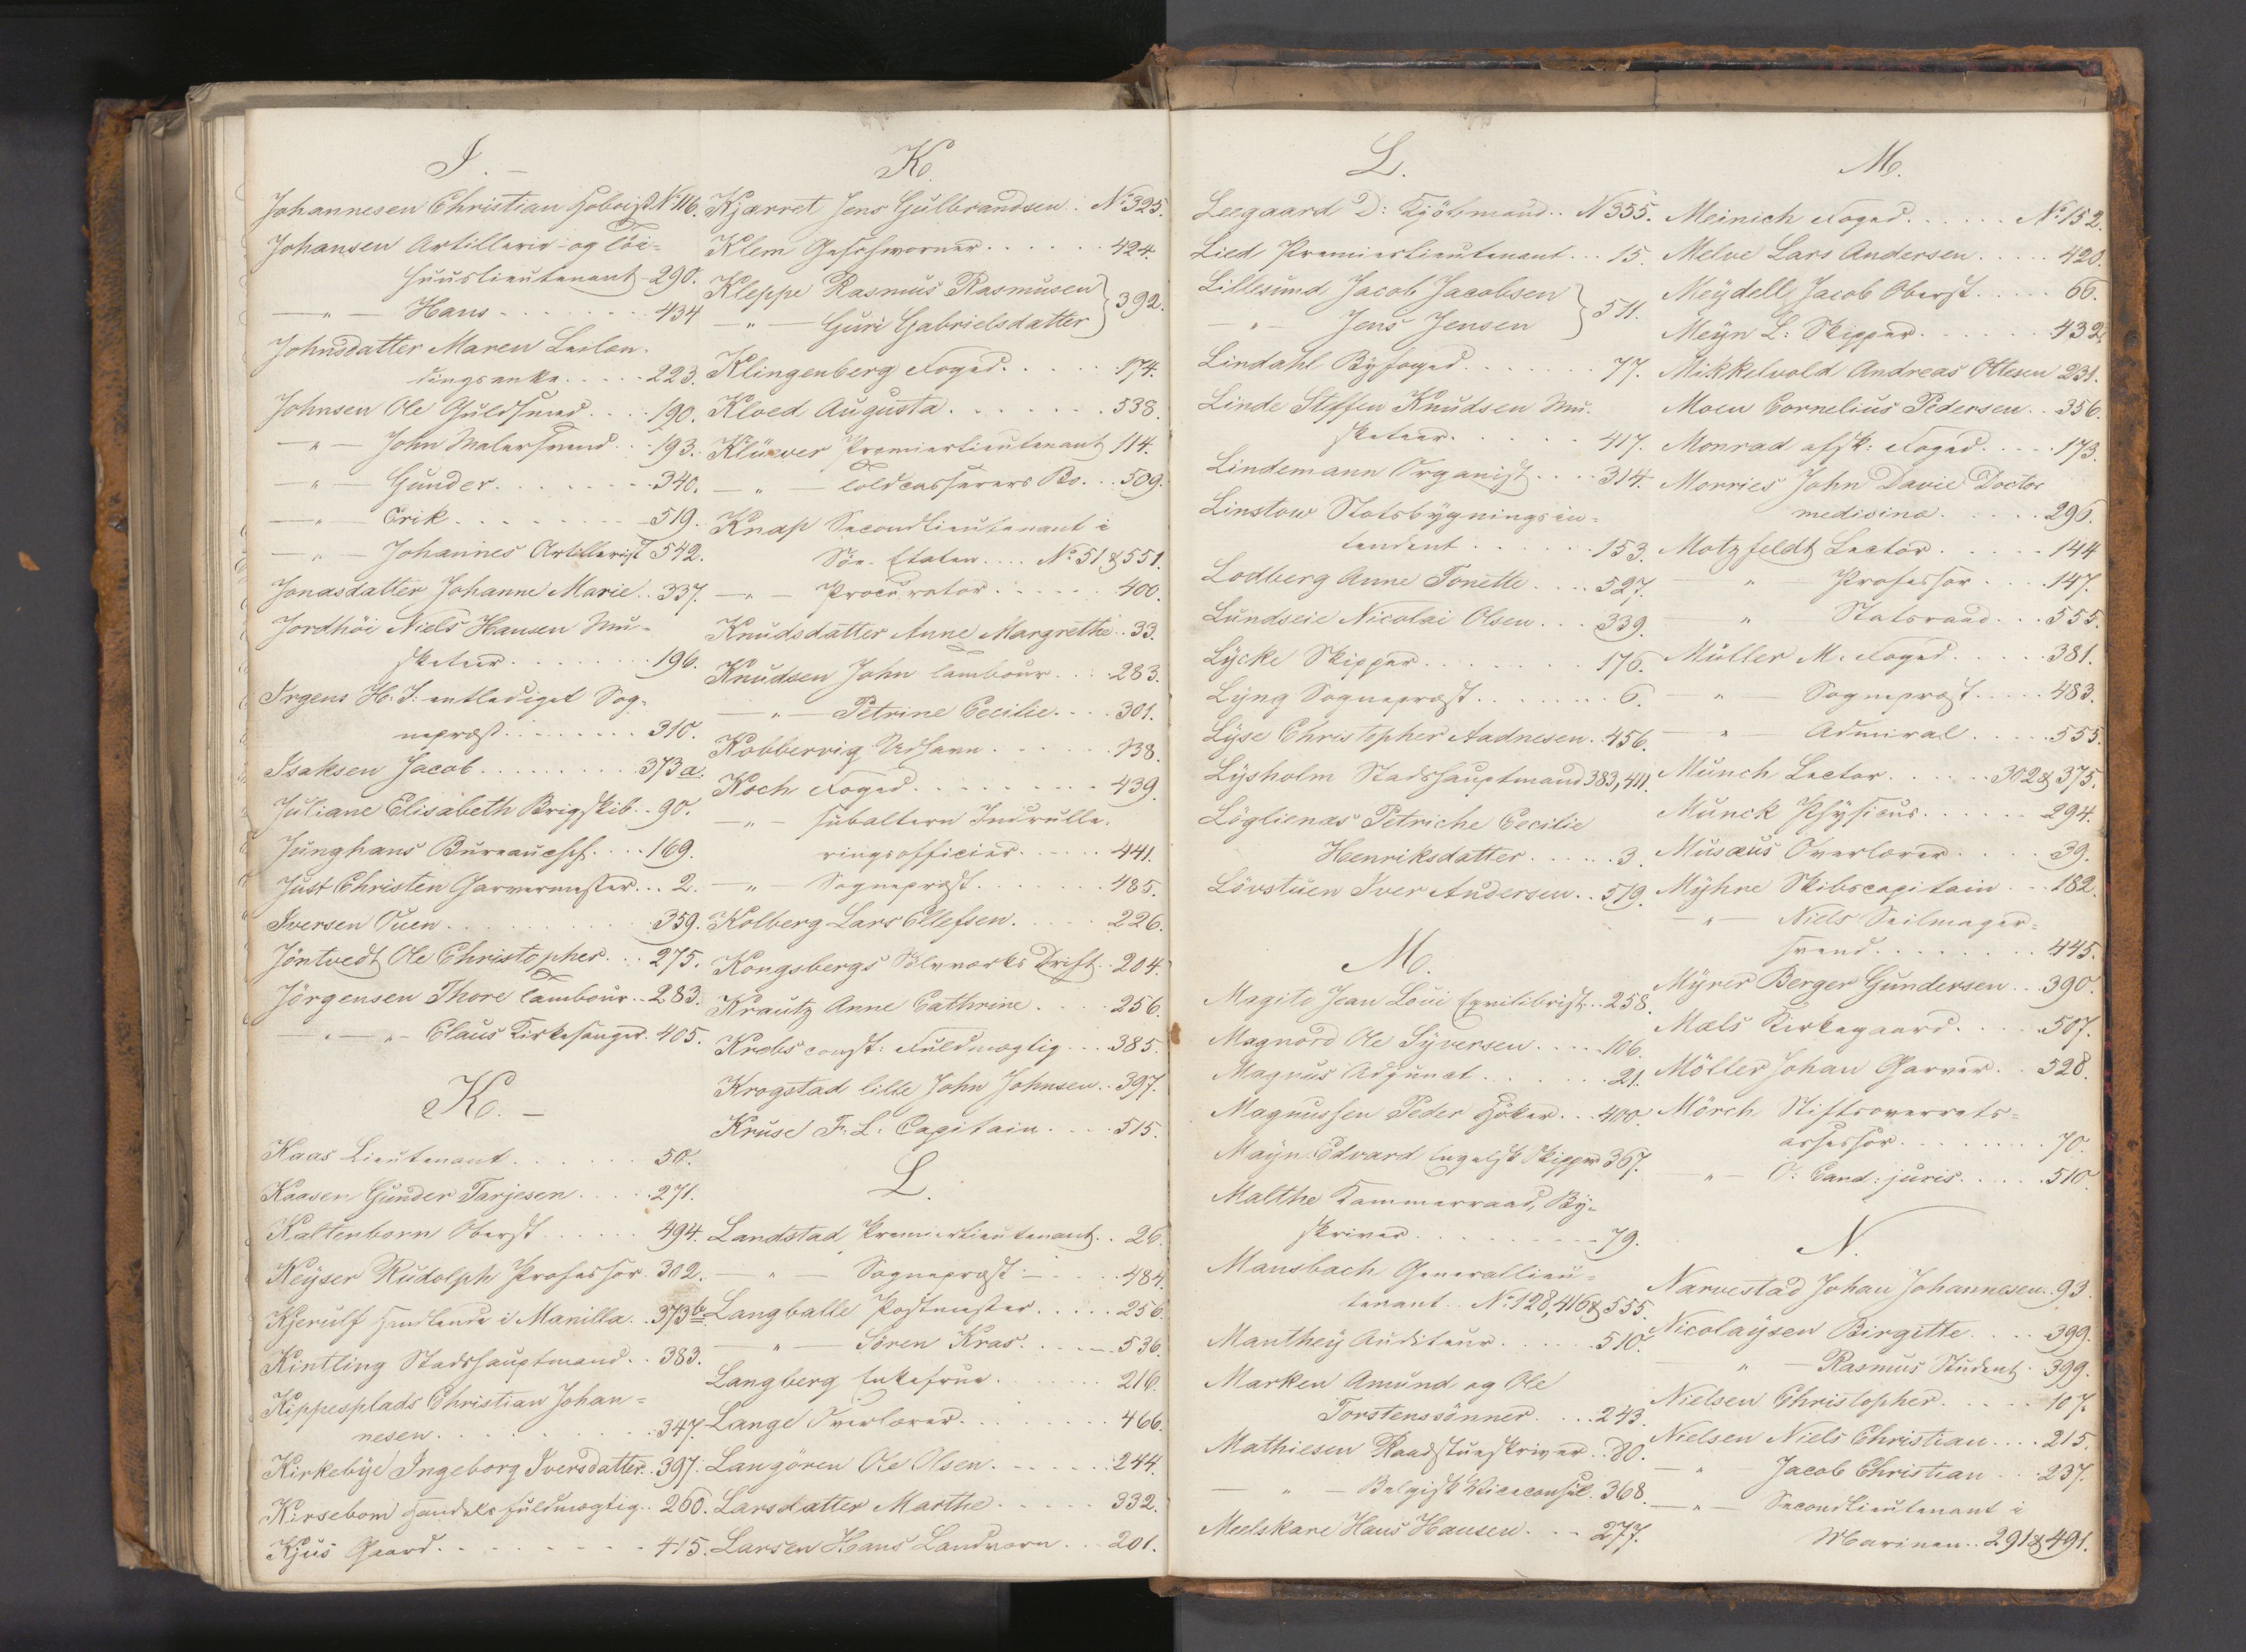 I. —
Johannesen Christian Hoboist No 116.
Johansen Artillerie- og Töi-
huuslieutenant 290.
— " — Hans 434
Johnsdatter Maren Leilæn-
dingsenke 223.
Johnsen Ole Guldsmed 190.
— " — John Malersvend 193.
— " — Gunder 340.
— " — Erik 519.
— " — Johannes Artillerist 542.
Jonasdatter Johanne Marie 337.
Jordhöi Niels Hansen Mu-
sketeer 196.
Irgens H. J. entlediget Sog-
nepræst 310.
Isaksen Jacob 373a.
Juliane Elisabeth Brigskib 90.
Junghans Bureauchef 169.
Just Christen Garvermester 2.
Iversen Ouen 359.
Jöntvedt Ole Christopher 275.
Jörgensen Thore Tambour 283.
— " — " — Claus Kirkesanger 405.
K. —
Kaas Lieutenant 50.
Kaasen Gunder Tarjesen 271.
Kaltenborn Oberst 494.
Keÿser Rudolph Professor 302.
Kjerulf Handlende i Manilla 373b.
Kintling Stadshauptmand 383.
Kippesplads Christian Johan-
nesen 347.
Kirkebÿe Ingeborg Iversdatter 397.
Kirsebom Handelsfuldmægtig 260.
Kjus Gaard 415.
K.
Kjærret Jens Gulbrandsen No 325.
Klem Geschworner 424.
Kleppe Rasmus Rasmusen } 392.
— " — Guri Gabrielsdatter
Klingenberg Foged 174.
Kloed Augusta 538.
Klüwer Premierlieutenant 114.
— " — Toldcasserers Bo 509.
Knap Secondlieutenant i
Söe-Etaten No 51 & 551.
— " — Procurator 400.
Knudsdatter Anne Margrethe 33.
Knudsen John Tambour 283.
— " — Petrine Cecilie 301.
Kobbervig Udhavn 138.
Koch Foged 439.
— " — subaltern Indrulle-
ringsofficier 441.
— " — Sognepræst 485.
Kolberg Lars Ellefsen 226.
Kongsbergs Sölvværks Drift 204.
Krautz Anne Cathrine 256.
Krebs const: Fuldmægtig 385.
Krogstad lille John Johnsen 397.
Kruse F. L. Capitain 515.
L.
Landstad Premierlieutenant 26.
— " — Sognepræst 484.
Langballe Postmester 256.
— " — Sören Kras 536.
Langberg Enkefrue 216.
Lange Overlærer 466.
Langören Ole Olsen 244.
Larsdatter Marthe 332.
Larsen Hans Landværn 201.
L.
Leegaard D: Kjöbmand No 355.
Lied Premierlieutenant 15.
Lillesund Jacob Jacobsen } 511.
— " — Jens Jensen
Lindahl Byfoged 77.
Linde Steffen Knudsen Mu-
sketeer 417.
Lindemann Organist 314.
Linstow Slotsbygningsin-
tendent 153.
Lodberg Anne Tonette 527.
Lundseie Nicolai Olsen 339.
Lÿcke Skipper 176.
Lÿng Sognepræst 6.
Lÿse Christopher Aadnesen 456.
Lÿsholm Stadshauptmand 383, 411.
Löglienas Petriche Cecilie
Henriksdatter 3.
Lövstuen Iver Andersen 519.
M.
Magito Jean Loui Eqvilibrist 258.
Magnord Ole Sÿversen 106.
Magnus Adjunct 21.
Magnussen Peder Höker 400.
Maÿn Edvard engelsk Skipper 367.
Malthe Kammerraad, By-
skriver 79.
Mansbach Generallieu-
tenant No 128, 416 & 555.
Mantheÿ Auditeur 510.
Marken Amund og Ole
Torstenssönner 243.
Mathiesen Raadstueskriver 80.
— " — Belgisk Viceconsul 368.
Meelskare Hans Hansen 277.
M.
Meinich Foged No 152.
Melve Lars Andersen 420.
Meÿdell Jacob Oberst 66.
Meÿn L: Skipper 432.
Mikkelvold Andreas Ottesen 231.
Moen Cornelius Pedersen 356.
Monrad afsk: Foged 173.
Morries John Davie Doctor
medicinæ 296.
Motzfeldt Lector 144
— " — Professor 147.
— " — Statsraad 555.
Müller M. Foged 381.
— " — Sognepræst 483.
— " — Admiral 555.
Munch Lector 302 & 375.
Munck Physicus 294.
Musæus Overlærer 39.
Mÿhre Skibscapitain 182.
— " — Niels Seilmager-
svend 445.
Mÿrer Berger Gundersen 390.
Mæls Kirkegaard 507.
Möller Johan Garver 528.
Mörch Stiftsoverrets-
assessor 70.
— " — O: Cand: juris 510.
N.
Narvestad Johan Johannesen 93.
Nicolaÿsen Birgitte 399.
— " — Rasmus Student 399.
Nielsen Christopher 107.
Nielsen Niels Christian 215.
— " — Jacob Christian 237.
— " — Secondlieutenant i
Marinen 291 & 491.